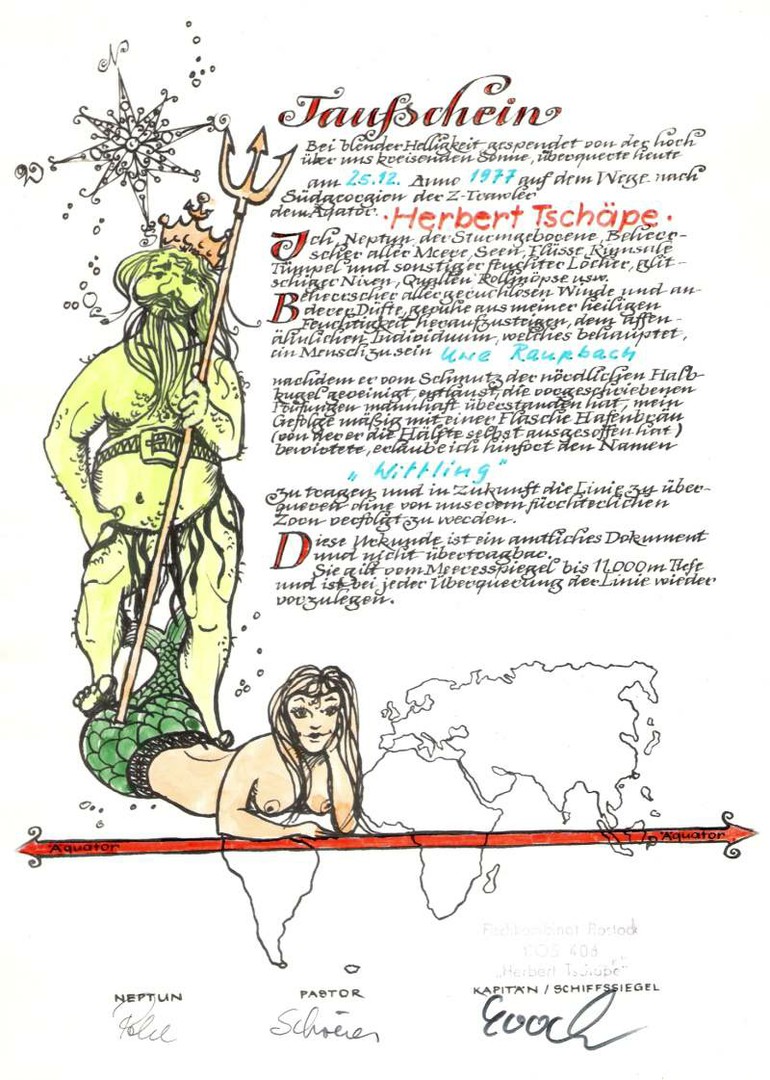 N
W
S
Taufschein
Bei blender Helligkeit gespendet von der hoch
über uns kreisenden Sonne, überquerte heute
am 25.12. Anno 1977 auf dem Wege nach
Südgeorgien der Z-Trawler
dem Äqator. · Herbert Tschäpe ·
Ich, Neptun der Sturmgeborene, Beherr-
scher aller Meere, Seen, Flüsse, Rinnsale
Tümpel und sonstiger feuchter Löcher, glit-
schiger Nixen, Quallen Rollmöpse usw.
Beherrscher aller geruchlosen Winde und an-
derer Düfte, geruhe aus meiner heiligen
Feuchtigkeit heraufzusteigen, dem affen-
ähnlichen Individuum, welches behauptet,
ein Mensch zu sein Uwe Raupbach
nachdem er vom Schmutz der nördlichen Halb-
kugel gereinigt, entlaust, die vorgeschriebenen
Prüfungen mannhaft überstanden hat, mein
Gefolge mäßig mit einer Flasche Hafenbräu
(von der er die Hälfte selbst ausgesoffen hat)
bewirtete, erlaube ich hinfort den Namen
„Wittling"
zu tragen und in Zukunft die Linie zu über-
queren ohne von unserem fürchterlichen
Zorn verfolgt zu werden.
Diese Urkunde ist ein amtliches Dokument
und nicht übertragbar.
Sie gilt vom Meeresspiegel bis 11.000 m Tiefe
und ist bei jeder Überquerung der Linie wieder
vorzulegen.
Äquator Äquator
Fischkombinat Rostock
ROS 408
„Herbert Tschäpe"
NEPTUN PASTOR KAPITÄN / SCHIFFSSIEGEL